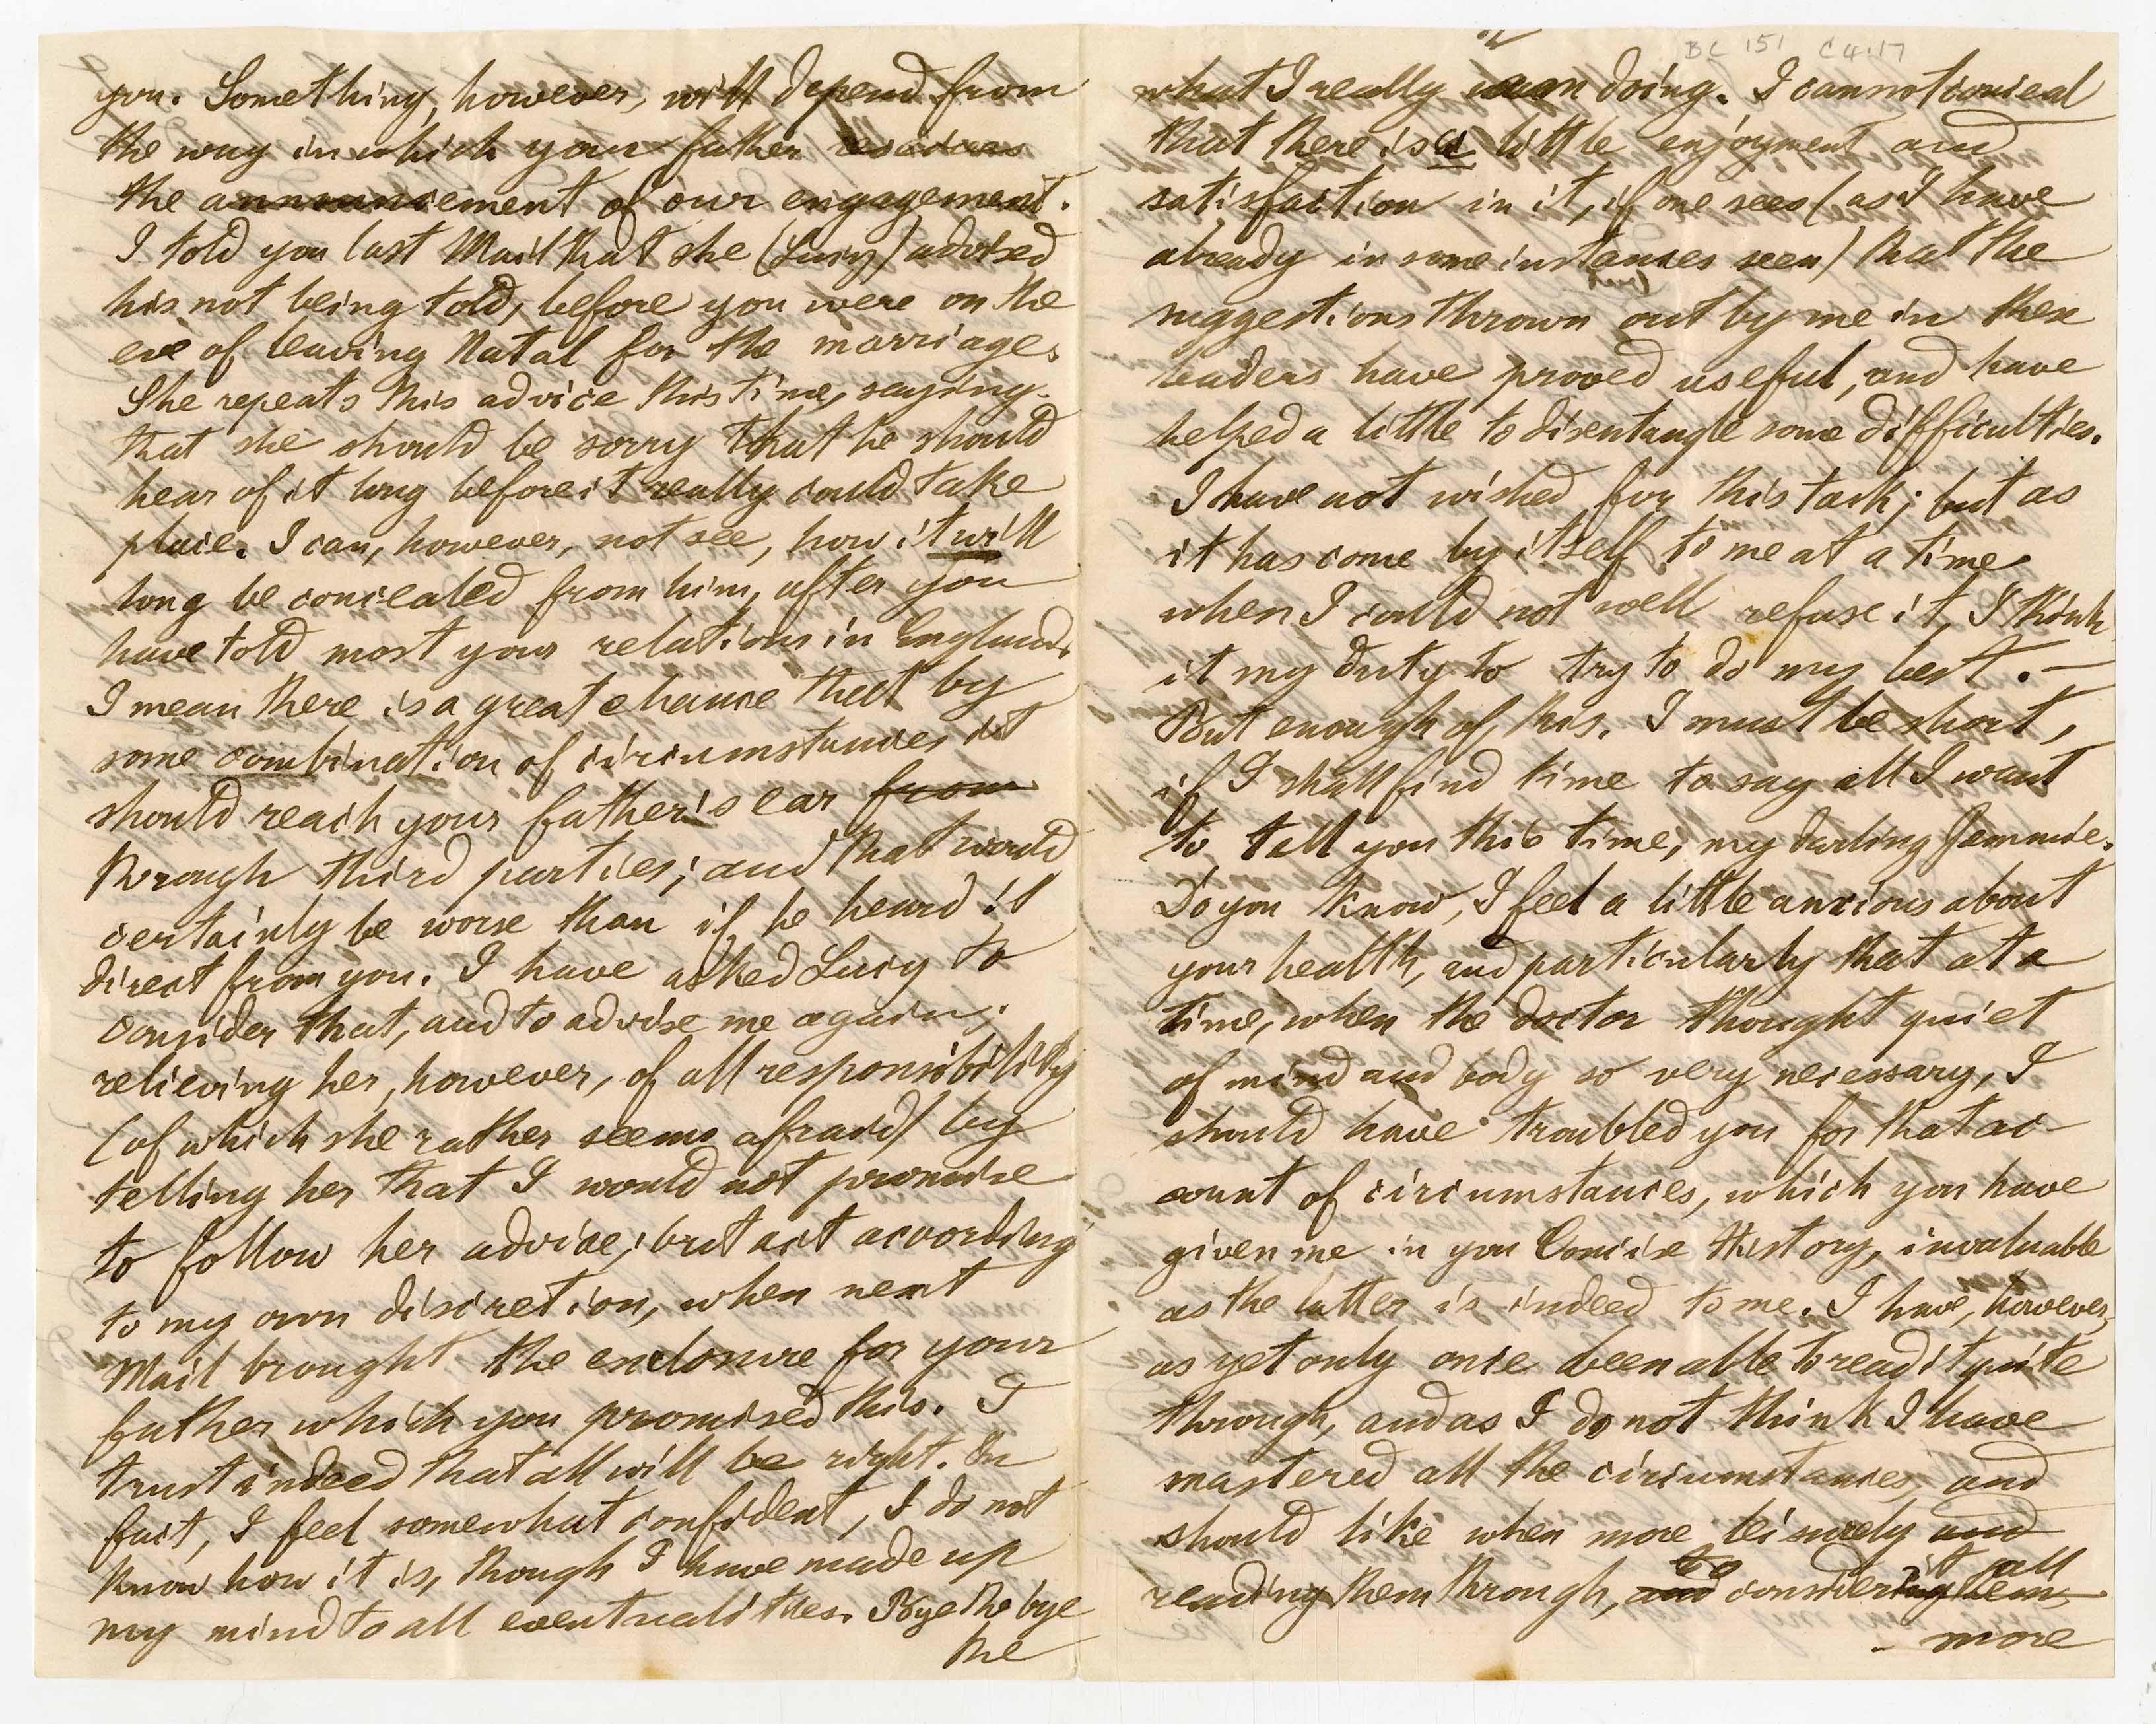 you. Something, however, will depend from
the way in which your father receives
the announcement of our engagement.
I told you last Mail that she (Lucy) advised
his not being told, before you were on the
eve of leaving Natal for the marriage.
She repeats this advice this time, saying
that she should be sorry that he should
hear of it long before it really could take
place. I can, however, not see, how it will
long be concealed from him, after you
have told most your relations in England.
I mean there is a great chance that by
some combination of circumstances it
should reach your father's ear from
through third parties; and that would
certainly be worse than if he heard it
direct from you. I have asked Lucy to
consider that, and to advise me again;
relieving her, however, of all responsibility
(of which she rather seems afraid) by
telling her that I would not promise
to follow her advice; but act according
to my own discretion, when next
Mail brought the enclosure for your
father which you promised this. I
trust indeed that all will be right. In
fact, I feel somewhat confident, I do not
know how it is, though I have made up
my mind to all eventualities. Bye the bye
the
BC 151 C4.17
what I really am doing. I cannot conceal
that there is a little enjoyment and
satisfaction in it, if one sees (as I have
already in some instances seen) that the
suggestions thrown out by me in these
leaders have proved useful, and have
helped a little to disentangle some difficulties.
I have not wished for this task; but as
it has come by itself to me at a time
when I could not well refuse it, I think
it my duty to try to do my best. —
But enough of this. I must be short,
if I shall find time to say all I want
to tell you this time, my darling Jemmie.
Do you know, I feel a little anxious about
your health, and particularly that at a
time, when the doctor thought quiet
of mind and body so very necessary, I
should have troubled you for that ac-
count of circumstances, which you have
given me in you Concise History, invaluable
as the latter is indeed to me. I have, however,
as yet only once been able to read it quite
through, and as I do not think I have
mastered all the circumstances, and
should like when more leisurely and
reading them through, and to considering them it all
more